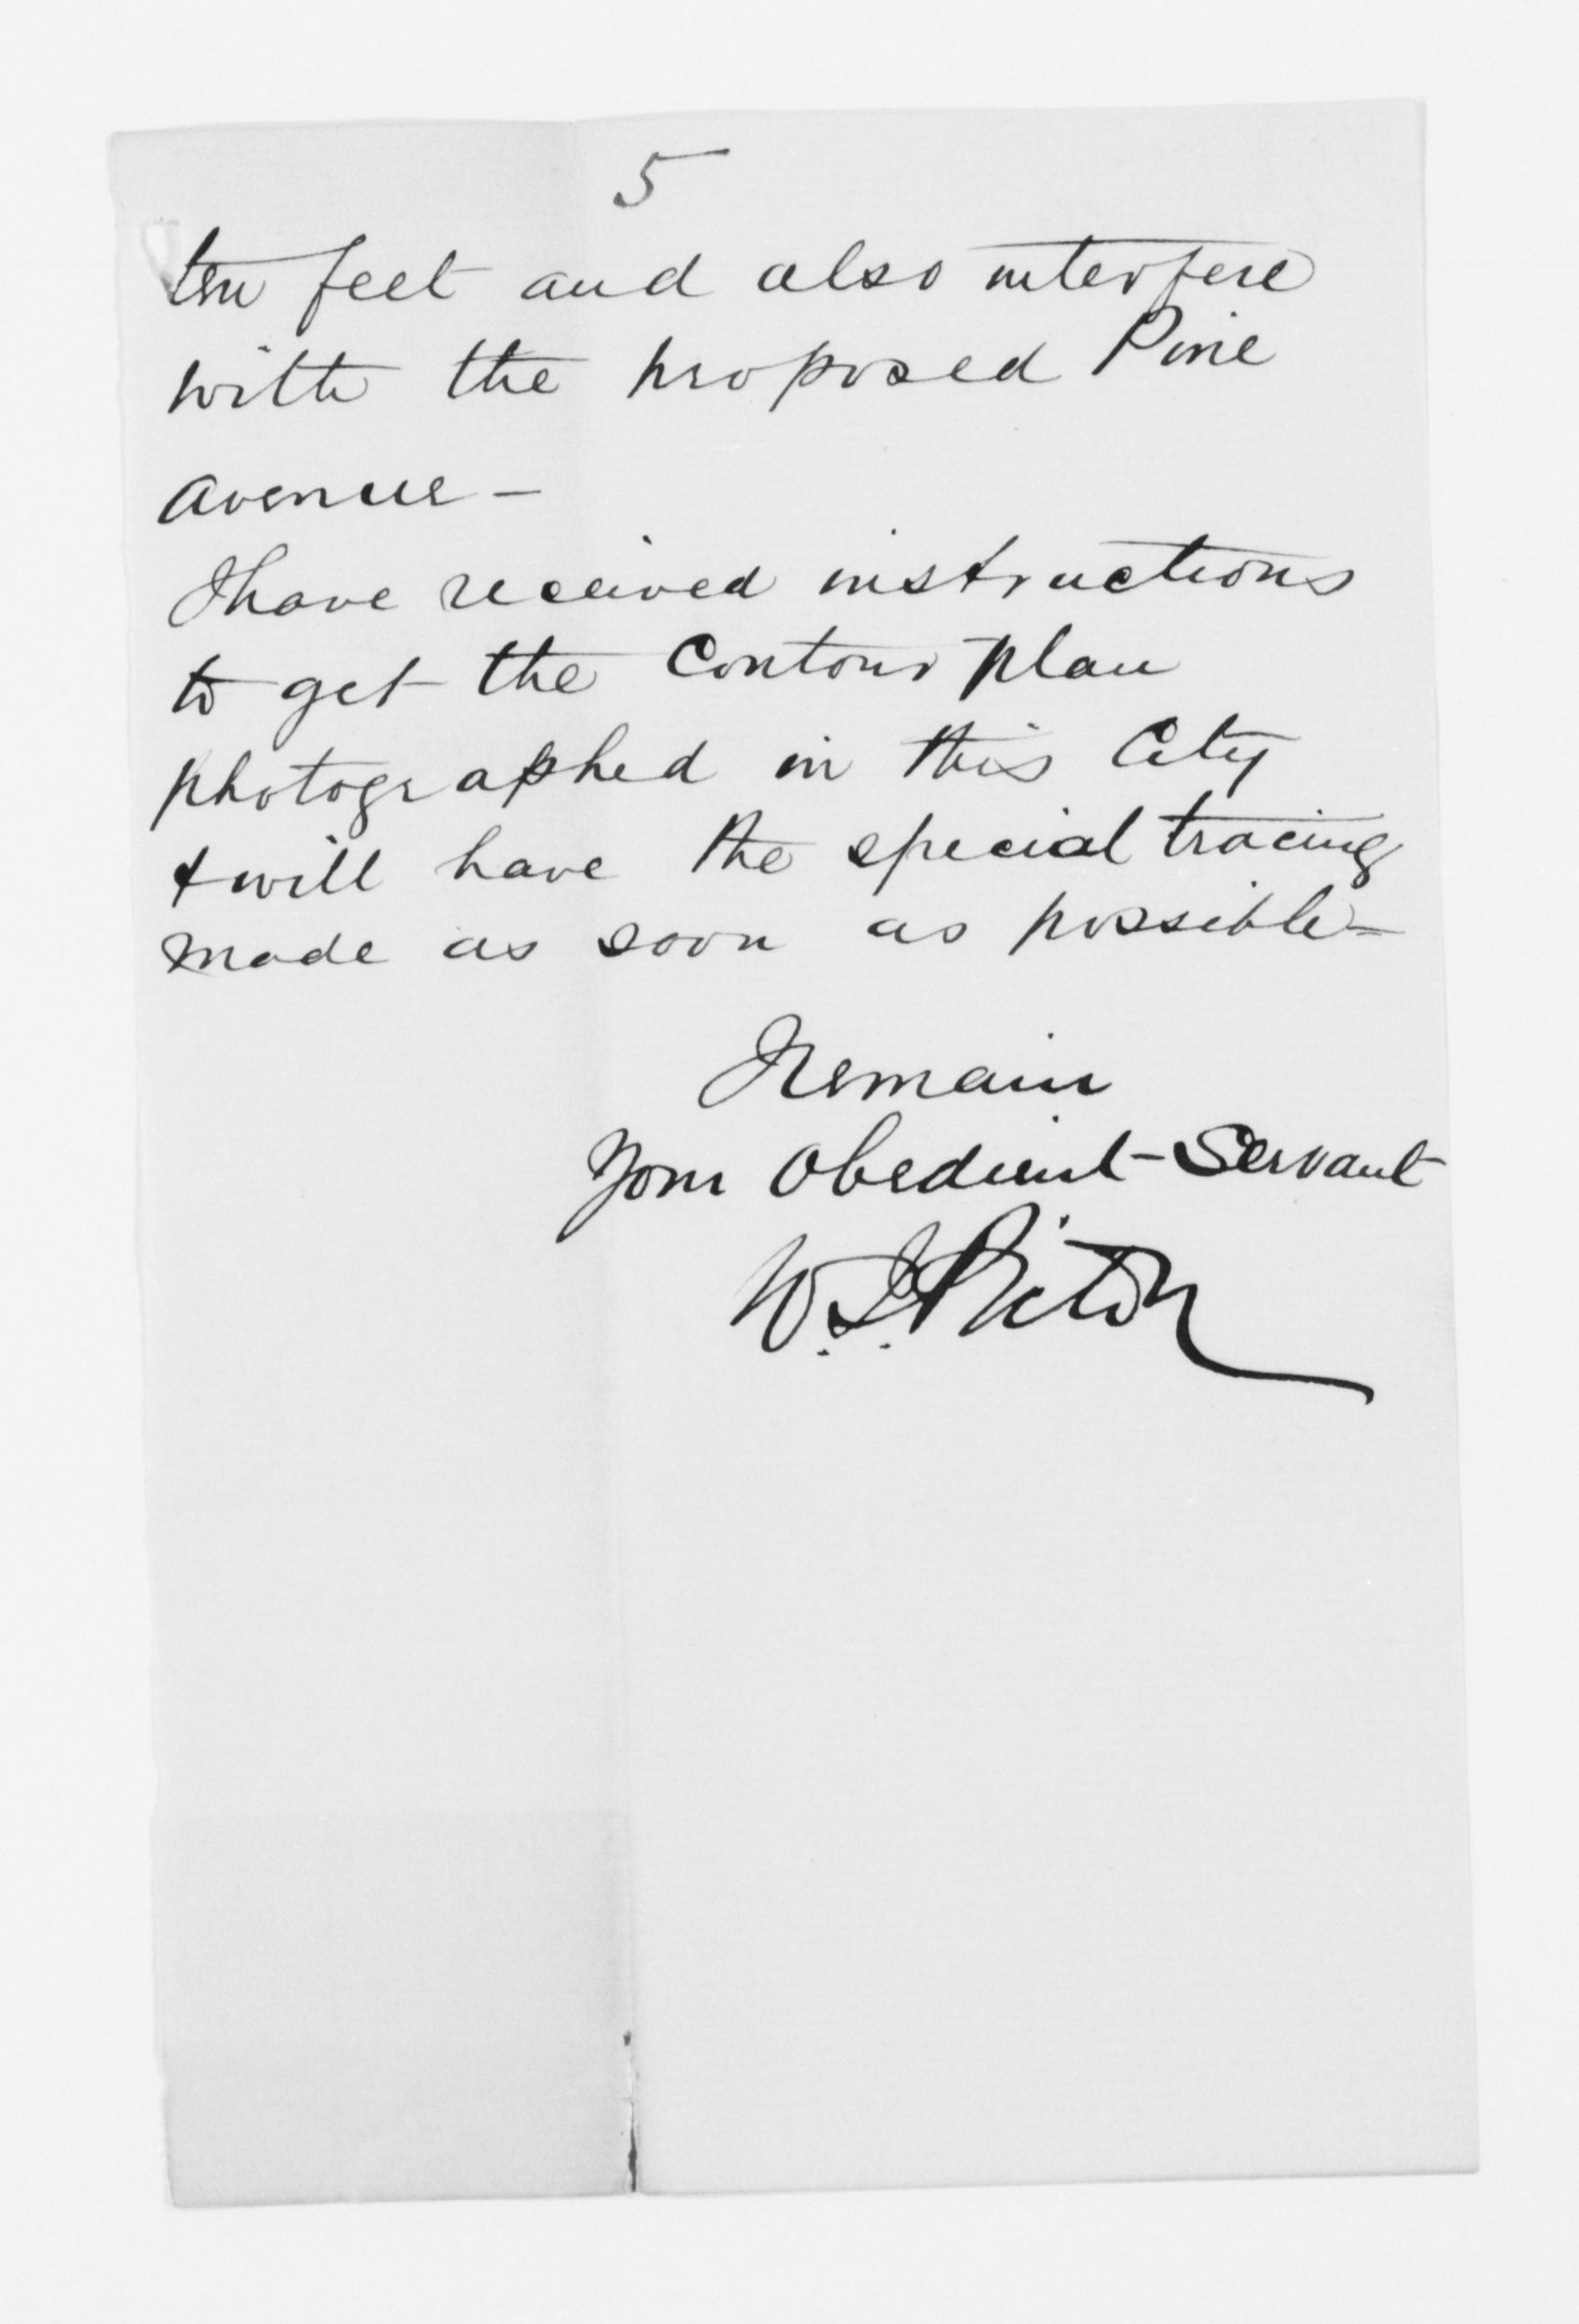 5
ten feet and also interfere
with the proposed Pine
avenue –
I have received instructions
to get the Contour plan
photographed in this City
& will have the special tracing
made as soon as possible –
I remain
Your Obedient Servant
W. J. Picton